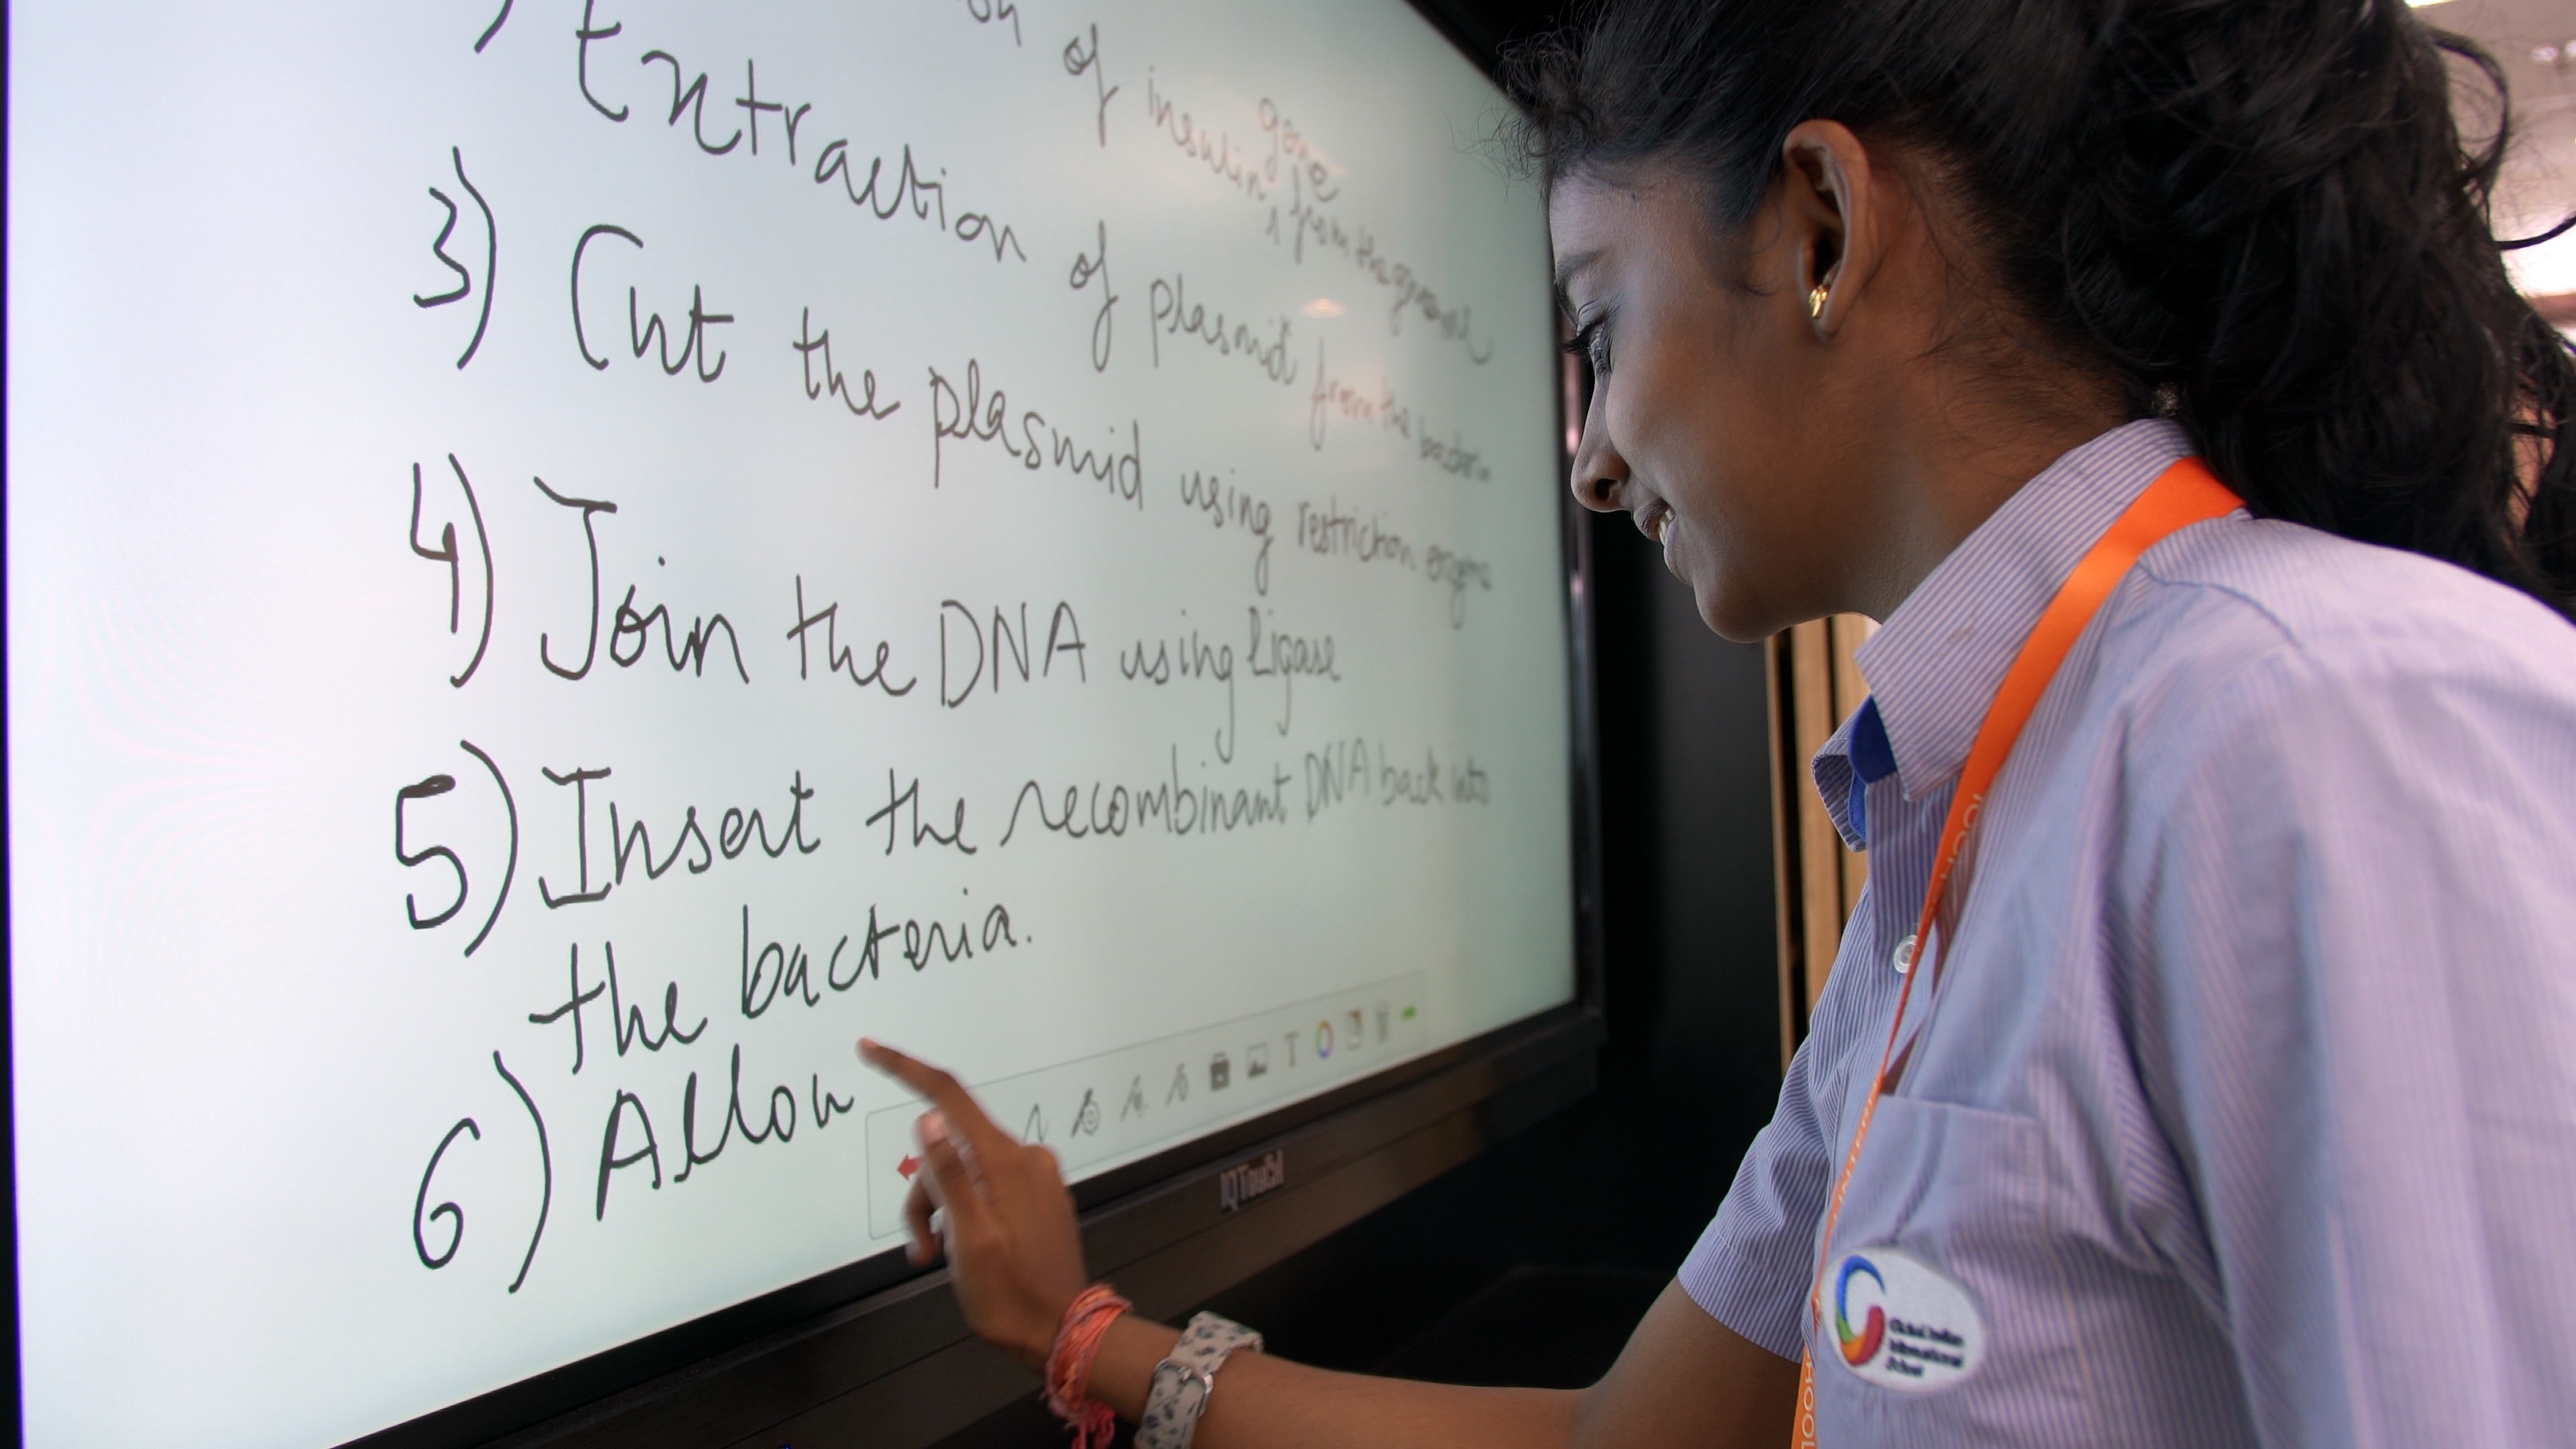 of insulin gene from the
) Extraction of plasmid from the bacteria
3) Cut the plasmid using restriction
4) Join the DNA using ligase
5) Insert the recombinant DNA back into
the bacteria.
6) Allow
T
IQTouch
Global Indian
International
School